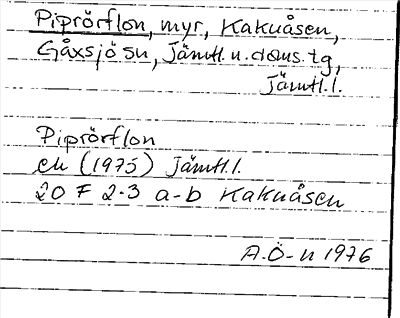 Piprörflon, myr, Kakuåsen,
Gåxsjö sn, Jämtl. n. doms. tg,
Jämtl. l.
Piprörflon
ek (1975) Jämtl. l.
20 F 2-3 a-b Kakuåsen
A.Ö-n 1976